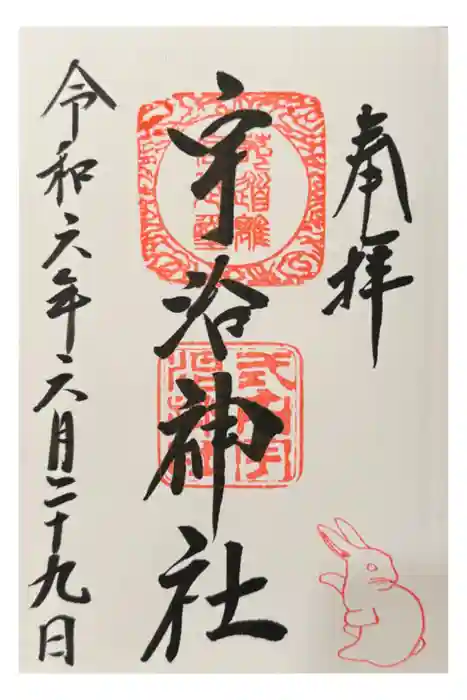 奉拝
宇治神社
令和六年六月二十九日